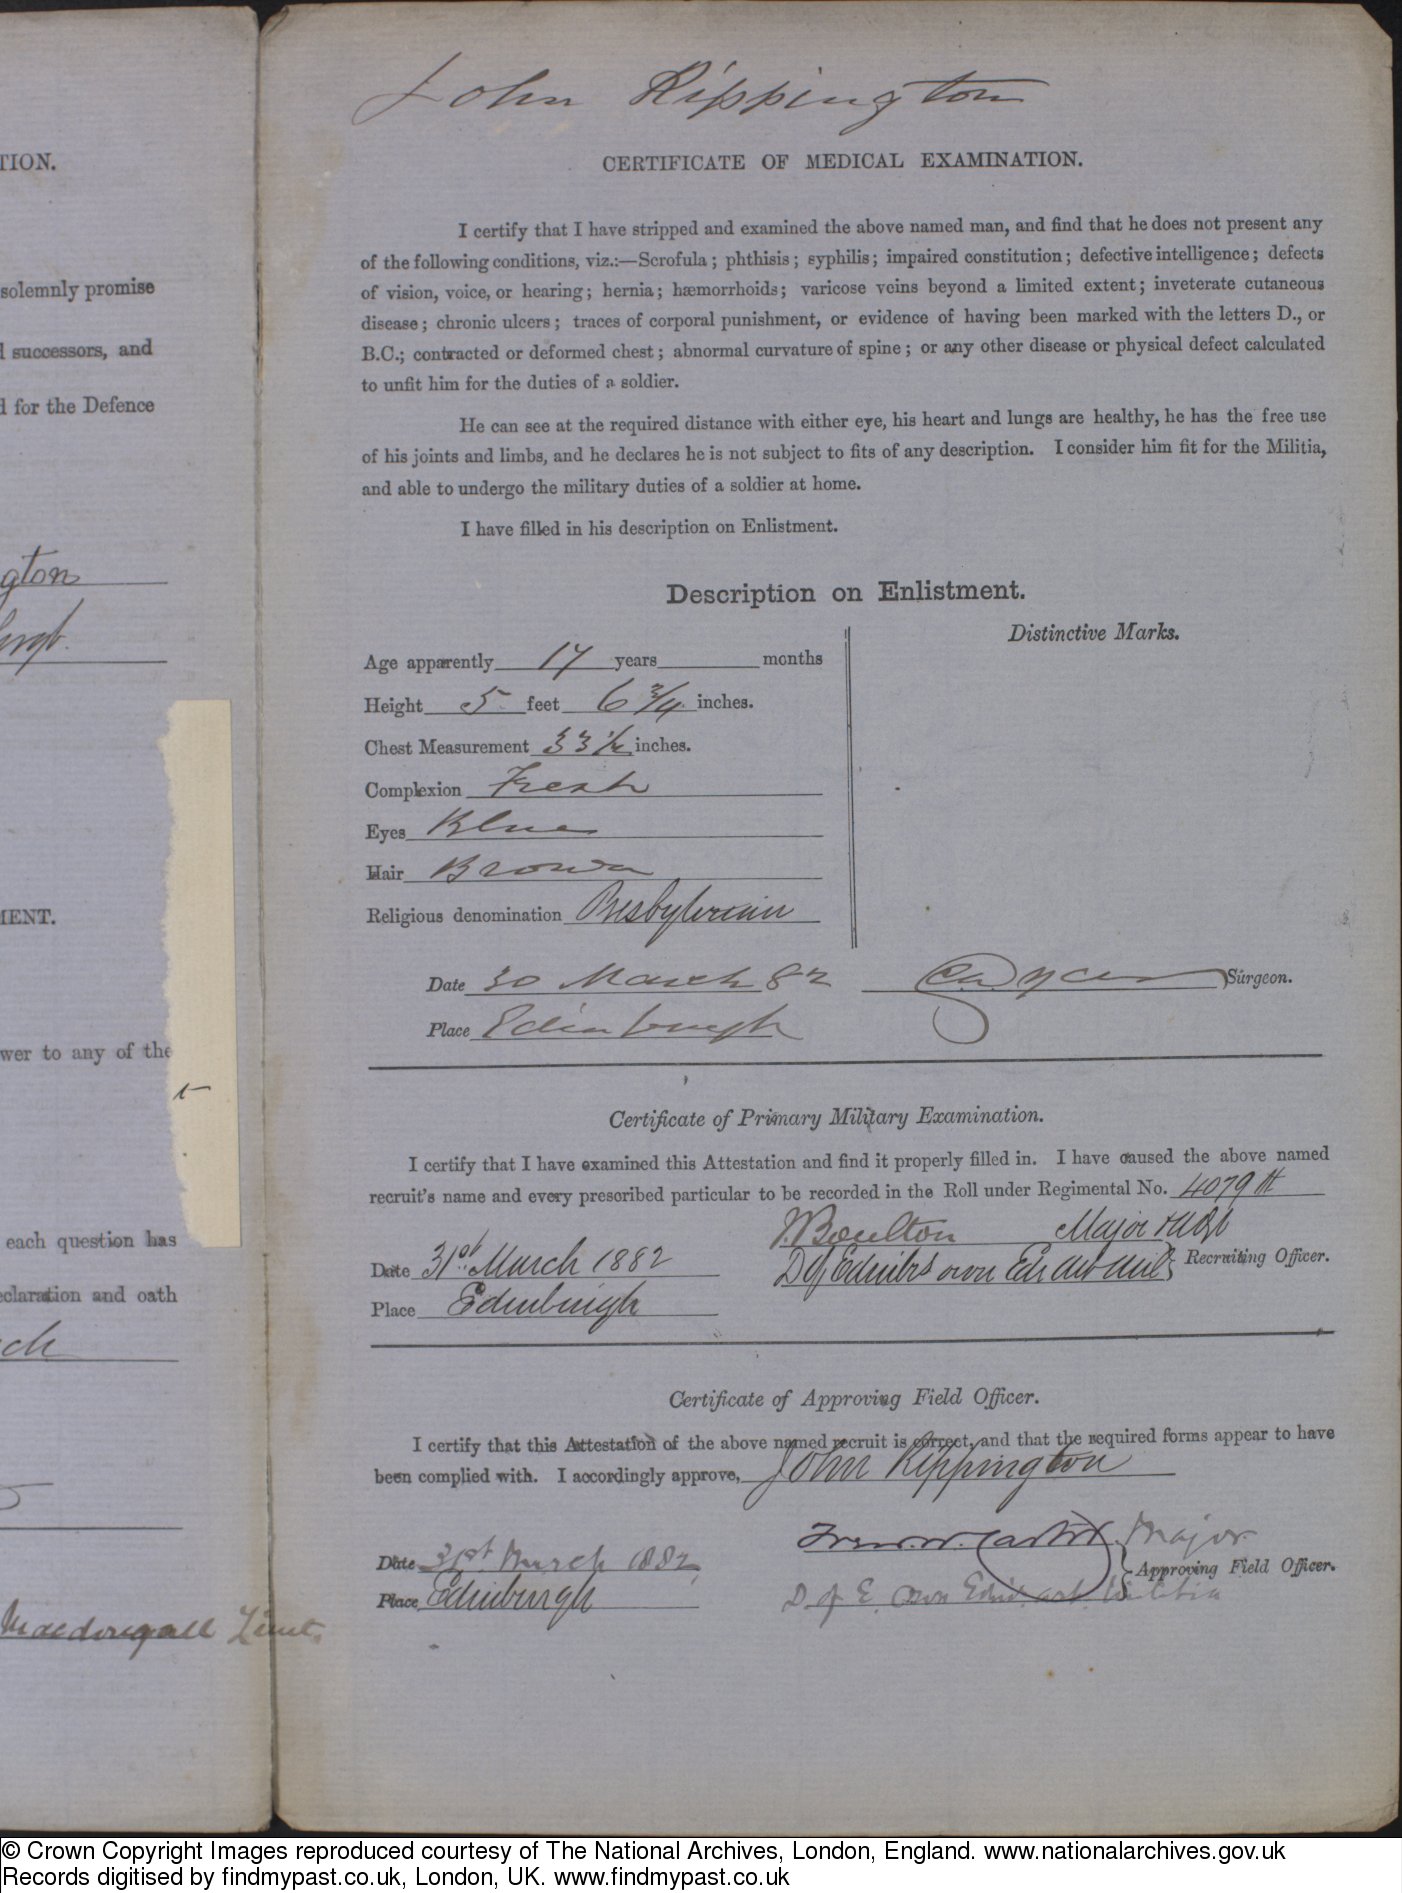 TION.
solemnly promise
d successors, and
d for the Defence
gton
MENT.
wer to any of the
each question has
eclaration and oath
ch
Macdougall Lieut.
John Rippington
CERTIFICATE OF MEDICAL EXAMINATION.
I certify that I have stripped and examined the above named man, and find that he does not present any
of the following conditions, viz.:—Scrofula; phthisis; syphilis; impaired constitution; defective intelligence; defects
of vision, voice, or hearing; hernia; hæmorrhoids; varicose veins beyond a limited extent; inveterate cutaneous
disease; chronic ulcers; traces of corporal punishment, or evidence of having been marked with the letters D., or
B.C.; contracted or deformed chest; abnormal curvature of spine; or any other disease or physical defect calculated
to unfit him for the duties of a soldier.
He can see at the required distance with either eye, his heart and lungs are healthy, he has the free use
of his joints and limbs, and he declares he is not subject to fits of any description. I consider him fit for the Militia,
and able to undergo the military duties of a soldier at home.
I have filled in his description on Enlistment.
Description on Enlistment.
Distinctive Marks.
Age apparently 17 years months
Height 5 feet 6 3/4 inches.
Chest Measurement 33 1/2 inches.
Complexion Fresh
Eyes Blue
Hair Brown
Religious denomination Presbyterian
Date 30 March 82 Surgeon.
Place Edinburgh
Certificate of Primary Military Examination.
I certify that I have examined this Attestation and find it properly filled in. I have caused the above named
recruit's name and every prescribed particular to be recorded in the Roll under Regimental No. 4079
J. Boulton Major
Date 31st March 1882 D of Edinbrs own Edn Art Mil Recruiting Officer.
Place Edinburgh
Certificate of Approving Field Officer.
I certify that this Attestation of the above named recruit is correct, and that the required forms appear to have
been complied with. I accordingly approve, John Rippington
Major
Date 31st March 1882 Approving Field Officer.
Place Edinburgh D of E. Own Edin. Art. Militia
© Crown Copyright Images reproduced courtesy of The National Archives, London, England. www.nationalarchives.gov.uk
Records digitised by findmypast.co.uk, London, UK. www.findmypast.co.uk